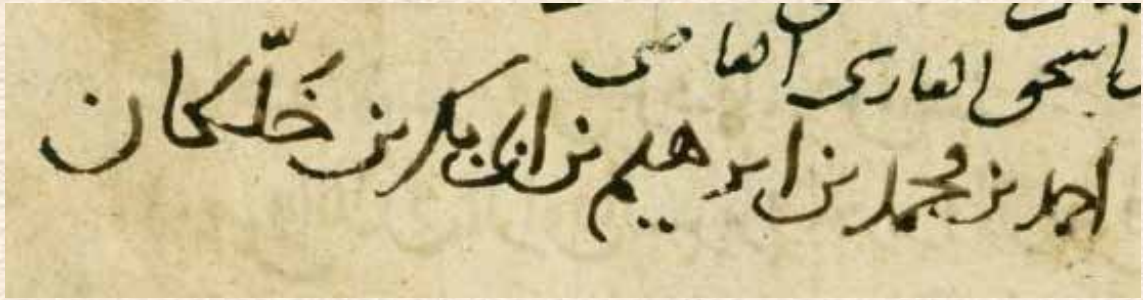 اسحق القارى القاضى
احمد بن محمد بن ابرهيم بن ابى بكر بن خلّكان